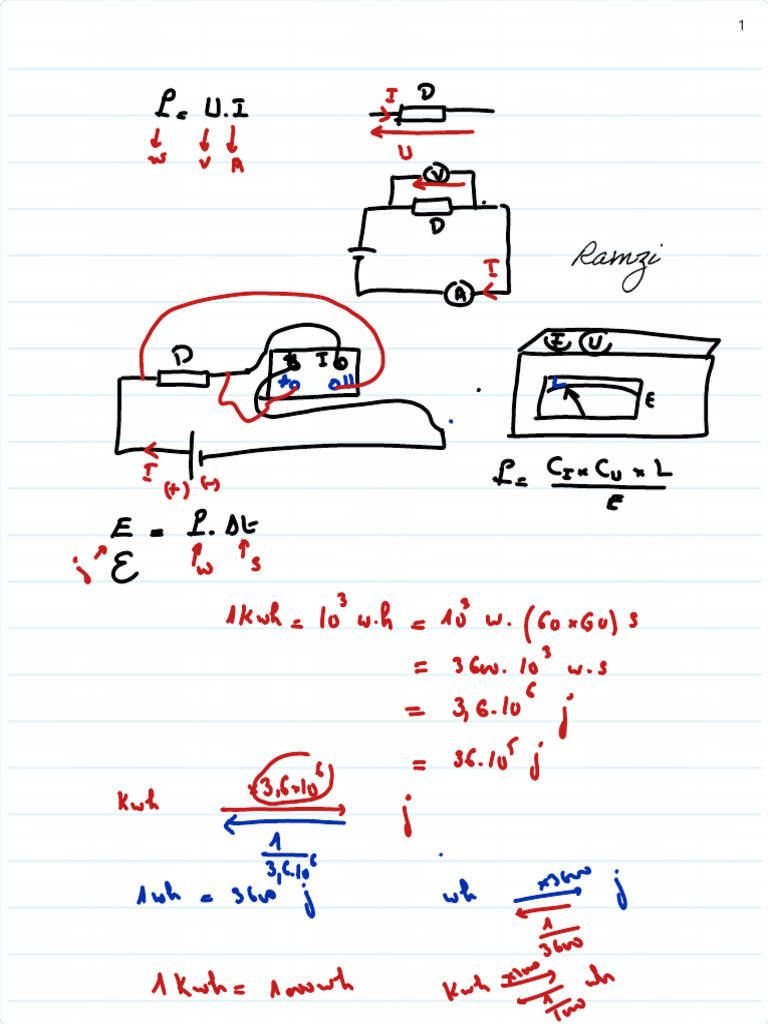 1
P = U.I
w V A
I D
U
V
D
I
A
Ramzi
D
* I
* U
I
(+) (-)
I U
L E
P = C_I × C_U × L / E
E = P. Δt
j ℰ w s
1Kwh = 10³ w.h = 10³ w. (60×60) s
= 3600. 10³ w.s
= 3,6.10⁶ j
= 36.10⁵ j
Kwh ×3,6×10⁶ j
1/3,6.10⁶
1wh = 3600 j wh ×3600 j
1/3600
1Kwh = 1000wh Kwh ×1000 wh
1/1000